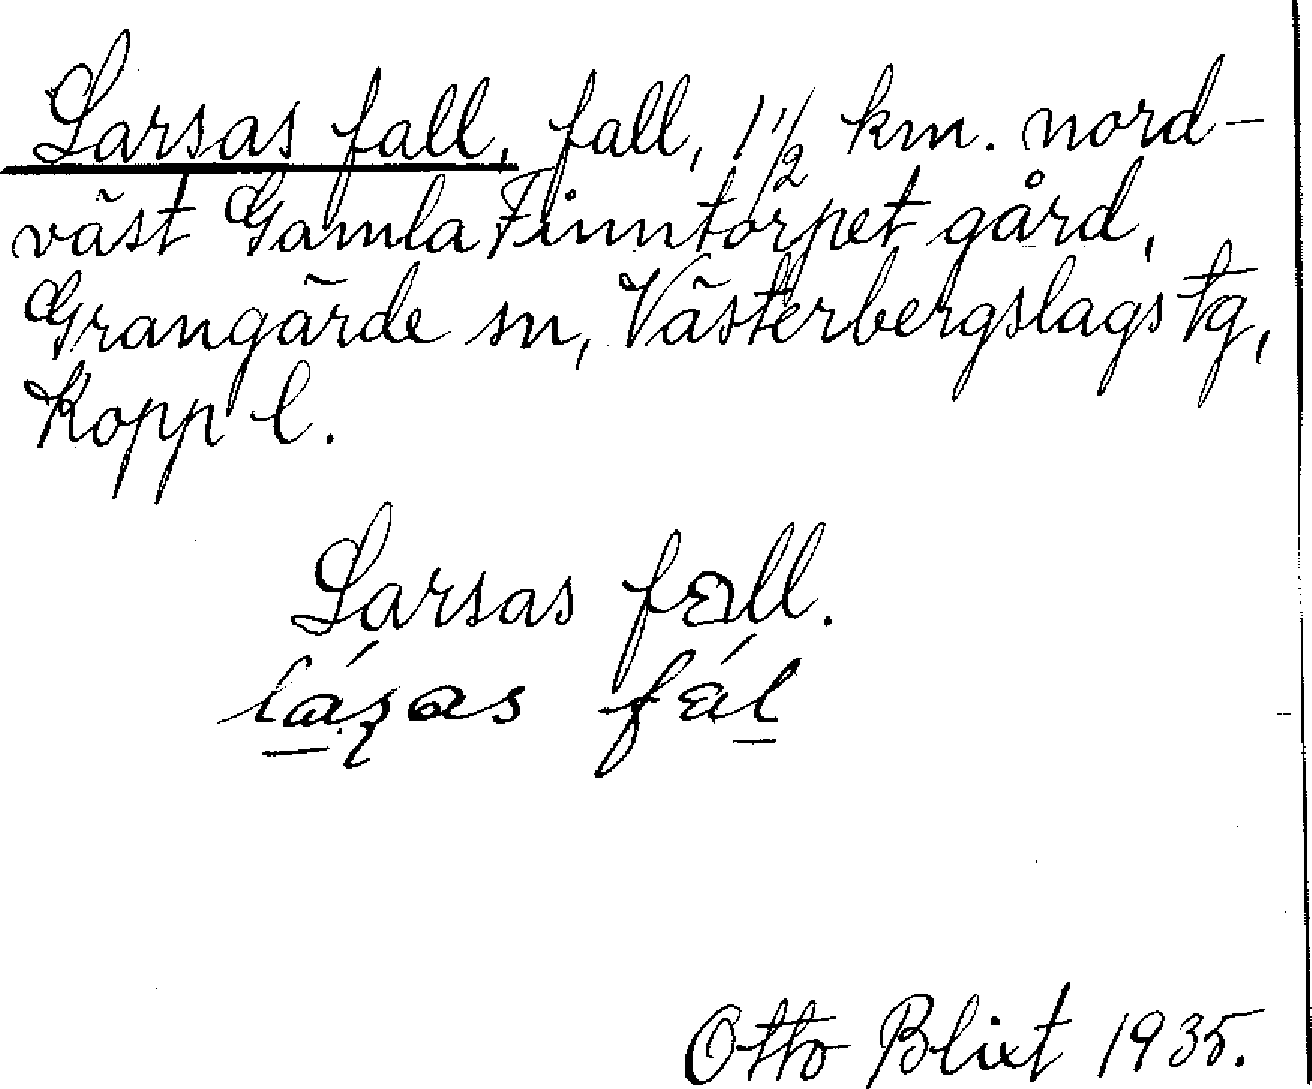 Larsas fall, fall, 1 1/2 km. nord-
väst Gamla Finntorpet gård,
Grangärde sn, Västerbergslags tg,
Kopp l.
Larsas fall.
láʂas fál
Otto Blixt 1935.